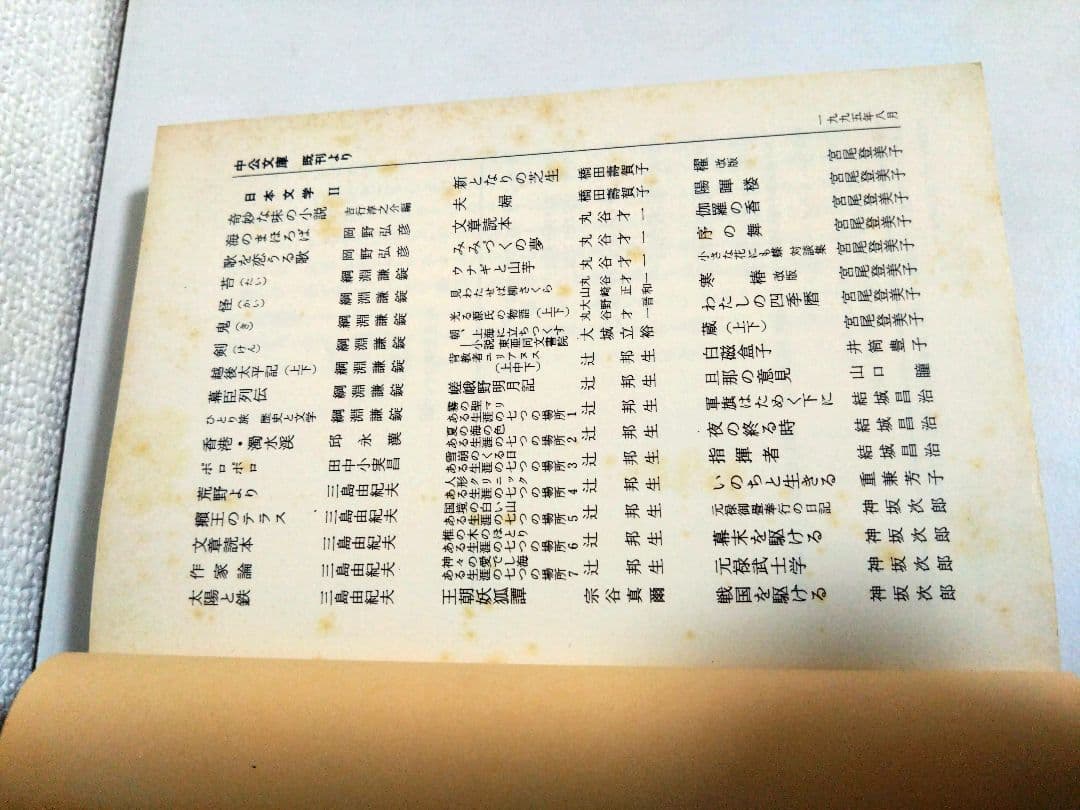 中公文庫 既刊より
一九九五年八月
日本文学 II
奇妙な味の小説 吉行淳之介編
海のまほろば 岡野弘彦
歌を恋うる歌 岡野弘彦
苔(たい) 綱淵謙錠
怪(かい) 綱淵謙錠
鬼(き) 綱淵謙錠
剣(けん) 綱淵謙錠
越後太平記(上下) 綱淵謙錠
幕臣列伝 綱淵謙錠
ひとり旅 歴史と文学 綱淵謙錠
香港・濁水渓 邱永漢
ポロポロ 田中小実昌
荒野より 三島由紀夫
癩王のテラス 三島由紀夫
文章読本 三島由紀夫
作家論 三島由紀夫
太陽と鉄 三島由紀夫
新となりの芝生 橋田壽賀子
夫婦 橋田壽賀子
文章読本 丸谷才一
みみづくの夢 丸谷才一
ウナギと山芋 丸谷才一
見わたせば柳さくら 丸谷才一 山崎正和
光る源氏の物語(上下) 大野晋 丸谷才一
朝、上海に立ちつくす
―小説東亜同文書院 大城立裕
背教者ユリアヌス(上中下) 辻邦生
嵯峨野明月記 辻邦生
霧の聖マリ
ある生涯の七つの場所1 辻邦生
夏の海の色
ある生涯の七つの場所2 辻邦生
雪崩のくる日
ある生涯の七つの場所3 辻邦生
人形クリニック
ある生涯の七つの場所4 辻邦生
国境の白い山
ある生涯の七つの場所5 辻邦生
椎の木のほとり
ある生涯の七つの場所6 辻邦生
神々の愛でし海
ある生涯の七つの場所7 辻邦生
王朝妖狐譚 宗谷真爾
櫂 改版 宮尾登美子
陽暉楼 宮尾登美子
伽羅の香 宮尾登美子
序の舞 宮尾登美子
小さな花にも蝶 対談集 宮尾登美子
寒椿 改版 宮尾登美子
わたしの四季暦 宮尾登美子
蔵(上下) 宮尾登美子
白磁盒子 井筒豊子
旦那の意見 山口瞳
軍旗はためく下に 結城昌治
夜の終る時 結城昌治
指揮者 結城昌治
いのちと生きる 重兼芳子
元禄御畳奉行の日記 神坂次郎
幕末を駆ける 神坂次郎
元禄武士学 神坂次郎
戦国を駆ける 神坂次郎